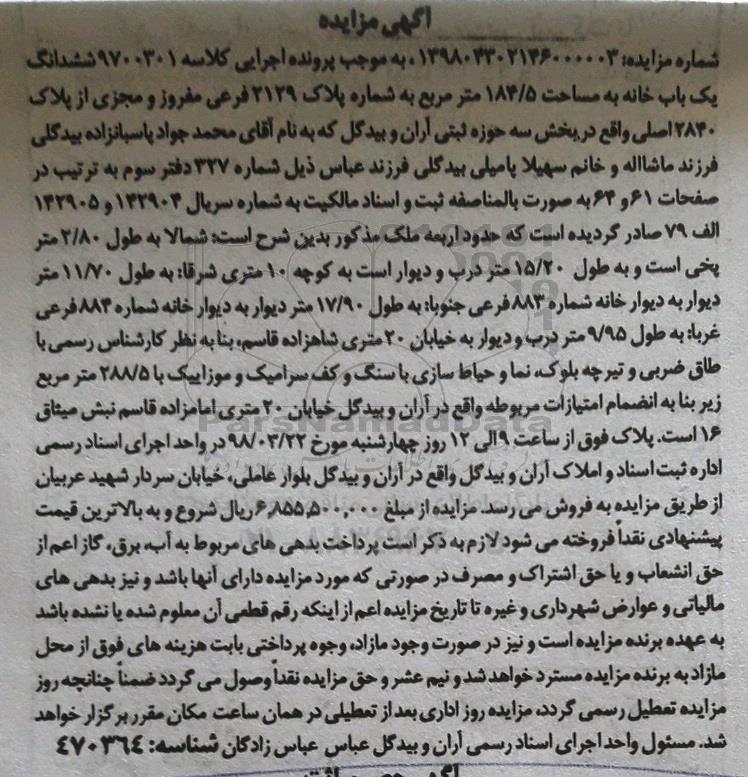 آگهی مزایده
شماره مزایده: ۱۳۹۸۰۴۳۰۲۱۴۶۰۰۰۰۰۳ ، به موجب پرونده اجرایی کلاسه ۹۷۰۰۳۰۱ ششدانگ
یک باب خانه به مساحت ۱۸۴/۵ متر مربع به شماره پلاک ۲۱۲۹ فرعی مفروز و مجزی از پلاک
۲۸۴۰ اصلی واقع در بخش سه حوزه ثبتی آران و بیدگل که به نام آقای محمد جواد پاسبانزاده بیدگلی
فرزند ماشااله و خانم سهیلا پامیلی بیدگلی فرزند عباس ذیل شماره ۳۲۷ دفتر سوم به ترتیب در
صفحات ۶۱ و ۶۴ به صورت بالمناصفه ثبت و اسناد مالکیت به شماره سریال ۱۴۲۹۰۴ و ۱۴۲۹۰۵
الف ۷۹ صادر گردیده است که حدود اربعه ملک مذکور بدین شرح است: شمالا به طول ۲/۸۰ متر
پخی است و به طول ۱۵/۲۰ متر درب و دیوار است به کوچه ۱۰ متری شرقا: به طول ۱۱/۷۰ متر
دیوار به دیوار خانه شماره ۸۸۳ فرعی جنوبا: به طول ۱۷/۹۰ متر دیوار به دیوار خانه شماره ۸۸۴ فرعی
غربا: به طول ۹/۹۵ متر درب و دیوار به خیابان ۲۰ متری شاهزاده قاسم، بنا به نظر کارشناس رسمی با
طاق ضربی و تیرچه بلوک، نما و حیاط سازی با سنگ و کف سرامیک و موزاییک با ۲۸۸/۵ متر مربع
زیر بنا به انضمام امتیازات مربوطه واقع در آران و بیدگل خیابان ۲۰ متری امامزاده قاسم نبش میثاق
۱۶ است. پلاک فوق از ساعت ۹ الی ۱۲ روز چهارشنبه مورخ ۹۸/۰۳/۲۲ در واحد اجرای اسناد رسمی
اداره ثبت اسناد و املاک آران و بیدگل واقع در آران و بیدگل بلوار عاملی، خیابان سردار شهید عربیان
از طریق مزایده به فروش می رسد. مزایده از مبلغ ۶,۸۵۵,۵۰۰,۰۰۰ ریال شروع و به بالاترین قیمت
پیشنهادی نقداً فروخته می شود لازم به ذکر است پرداخت بدهی های مربوط به آب، برق، گاز اعم از
حق انشعاب و یا حق اشتراک و مصرف در صورتی که مورد مزایده دارای آنها باشد و نیز بدهی های
مالیاتی و عوارض شهرداری و غیره تا تاریخ مزایده اعم از اینکه رقم قطعی آن معلوم شده یا نشده باشد
به عهده برنده مزایده است و نیز در صورت وجود مازاد، وجوه پرداختی بابت هزینه های فوق از محل
مازاد به برنده مزایده مسترد خواهد شد و نیم عشر و حق مزایده نقداً وصول می گردد ضمناً چنانچه روز
مزایده تعطیل رسمی گردد، مزایده روز اداری بعد از تعطیلی در همان ساعت مکان مقرر برگزار خواهد
شد. مسئول واحد اجرای اسناد رسمی آران و بیدگل عباس عباس زادگان شناسه: ۴۷۰۳۶۴
ParsNamadData